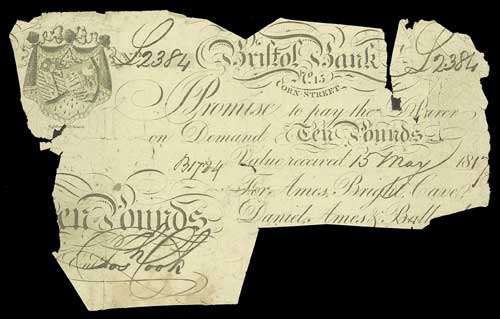 £2384 Bristol Bank £2384
No. 15
CORN-STREET
I Promise to pay the Bearer
on Demand Ten Pounds
B1724 Value received 15 May 1817
For Ames, Bright, Cave,
en Pounds Daniel, Ames & Ball
Hook